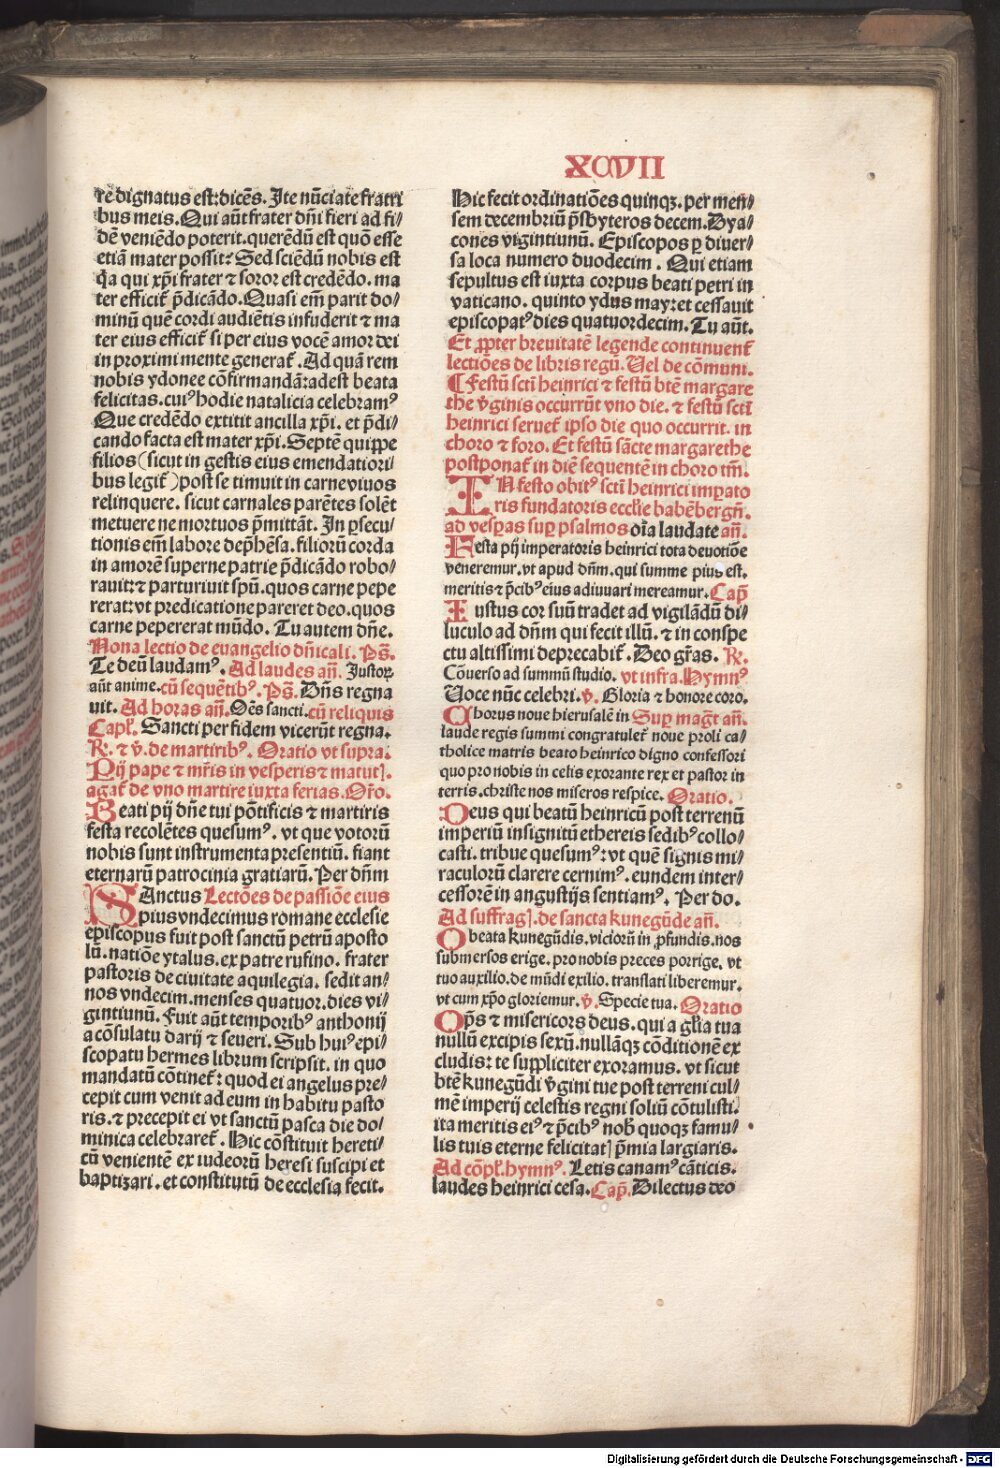 XCVII
re dignatus est: dicēs. Ite nūciate fratri
bus meis. Qui aūt frater dn̄i fieri ad fi⸗
dē veniēdo poterit. querēdū est quō esse
etiā mater possit: Sed sciēdū nobis est
q̄a qui xp̄i frater ⁊ soror est credēdo. ma
ter efficit᷑ p̄dicādo. Quasi em̄ parit do⸗
minū quē cordi audiētis infuderit ⁊ ma
ter eius efficit᷑ si per eius vocē amor dei
in proximi mente generat᷑. Ad quā rem
nobis ydonee cōfirmandā: adest beata
felicitas. cuiꝰ hodie natalicia celebramꝰ
Que credēdo extitit ancilla xp̄i. et p̄di⸗
cando facta est mater xp̄i. Septē quippe
filios (sicut in gestis eius emendatiori⸗
bus legit᷑) post se timuit in carne viuos
relinquere. sicut carnales parētes solēt
metuere ne mortuos p̄mittāt. In ꝑsecu⸗
tionis em̄ labore dep̄hēsa. filiorū corda
in amorē superne patrie p̄dicādo robo⸗
rauit: ⁊ parturiuit spū. quos carne pepe
rerat: vt predicatione pareret deo. quos
carne pepererat mūdo. Tu autem dn̄e.
Nona lectio de euangelio dn̄icali. Ps̄.
Te deū laudamꝰ. Ad laudes an̄. Iustoꝝ
aūt anime. cū sequētibꝰ. Ps̄. Dn̄s regna
uit. Ad horas an̄. Oēs sancti. cū reliquis
Capl̄. Sancti per fidem vicerūt regna.
R̄. ⁊ v̄. de martiribꝰ. Oratio vt supra.
Pij pape ⁊ mr̄is in vesperis ⁊ matut].
agat᷑ de vno martire iuxta ferias. Or̄o.
Beati pij dn̄e tui pōtificis ⁊ martiris
festa recolētes quesumꝰ. vt que votorū
nobis sunt instrumenta presentiū. fiant
eternarū patrocinia gratiarū. Per dn̄m
SAnctus Lectōes de passiōe eius
pius vndecimus romane ecclesie
episcopus fuit post sanctū petrū aposto
lū. natiōe ytalus. ex patre rufino. frater
pastoris de ciuitate aquilegia. sedit an⸗
nos vndecim. menses quatuor. dies vi⸗
gintiunū. Fuit aūt temporibꝰ anthonij
a cōsulatu darij ⁊ seueri. Sub huiꝰ epi⸗
scopatu hermes librum scripsit. in quo
mandatū cōtinet᷑: quod ei angelus pre⸗
cepit cum venit ad eum in habitu pasto
ris. ⁊ precepit ei vt sanctū pasca die do⸗
minica celebraret᷑. Hic cōstituit hereti⸗
cū venientē ex iudeorū heresi suscipi et
baptizari. et constitutū de ecclesia fecit.
Hic fecit ordinatiōes quinqꝫ. per men⸗
sem decembriū p̄sbyteros decem. Dya⸗
cones vigintiunū. Episcopos ꝑ diuer⸗
sa loca numero duodecim. Qui etiam
sepultus est iuxta corpus beati petri in
vaticano. quinto ydus may: et cessauit
episcopatꝰ dies quatuordecim. Tu aūt.
Et ꝓpter breuitatē legende continuent᷑
lectiōes de libris regū. Vel de cōmuni.
¶ Festū sctī heinrici ⁊ festū btē margare
the v̄ginis occurrūt vno die. ⁊ festū sctī
heinrici seruet᷑ ipso die quo occurrit. in
choro ⁊ foro. Et festū sācte margarethe
postponat᷑ in diē sequentē in choro tm̄.
IN festo obitꝰ sctī heinrici imꝑato
ris fundatoris eccl̄ie babēbergn̄.
ad vesꝑas suꝑ psalmos oīa laudate an̄.
Festa pij imperatoris heinrici tota deuotiōe
veneremur. vt apud dn̄m. qui summe pius est.
meritis ⁊ p̄cibꝰ eius adiuuari mereamur. Cap̄
Iustus cor suū tradet ad vigilādū di⸗
luculo ad dn̄m qui fecit illū. ⁊ in conspe
ctu altissimi deprecabit᷑. Deo gr̄as. R̄.
Cōuerso ad summū studio. vt infra. Hymnꝰ
Uoce nūc celebri. v̄. Gloria ⁊ honore coro.
Chorus noue hierusalē in Suꝑ mag̅t an̄.
laude regis summi congratulet᷑ noue proli ca⸗
tholice matris beato heinrico digno confessori
quo pro nobis in celis exorante rex et pastor in
terris. christe nos miseros respice. Oratio.
Deus qui beatū heinricū post terrenū
imperiū insignitū ethereis sedibꝰ collo⸗
casti. tribue quesumꝰ: vt quē signis mi⸗
raculorū clarere cernimꝰ. eundem inter⸗
cessorē in angustijs sentiamꝰ. Per do.
Ad suffrag]. de sancta kunegūde an̄.
O beata kunegūdis. viciorū in ꝓfundis. nos
submersos erige. pro nobis preces porrige. vt
tuo auxilio. de mūdi exilio. translati liberemur.
vt cum xp̄o gloriemur. v̄. Specie tua. Oratio
Op̄s ⁊ misericors deus. qui a gl̄ia tua
nullū excipis sexū. nullāqꝫ cōditionē ex
cludis: te suppliciter exoramus. vt sicut
btē kunegūdi v̄gini tue post terreni cul⸗
mē imperij celestis regni soliū cōtulisti.
ita meritis eiꝰ ⁊ p̄cibꝰ nob̄ quoqꝫ famu⸗
lis tuis eterne felicitat] p̄mia largiaris.
Ad cōpl̄. hymnꝰ. Letis canamꝰ cāticis.
laudes heinrici cesa. Cap̄. Dilectus deo
Digitalisierung gefördert durch die Deutsche Forschungsgemeinschaft - DFG